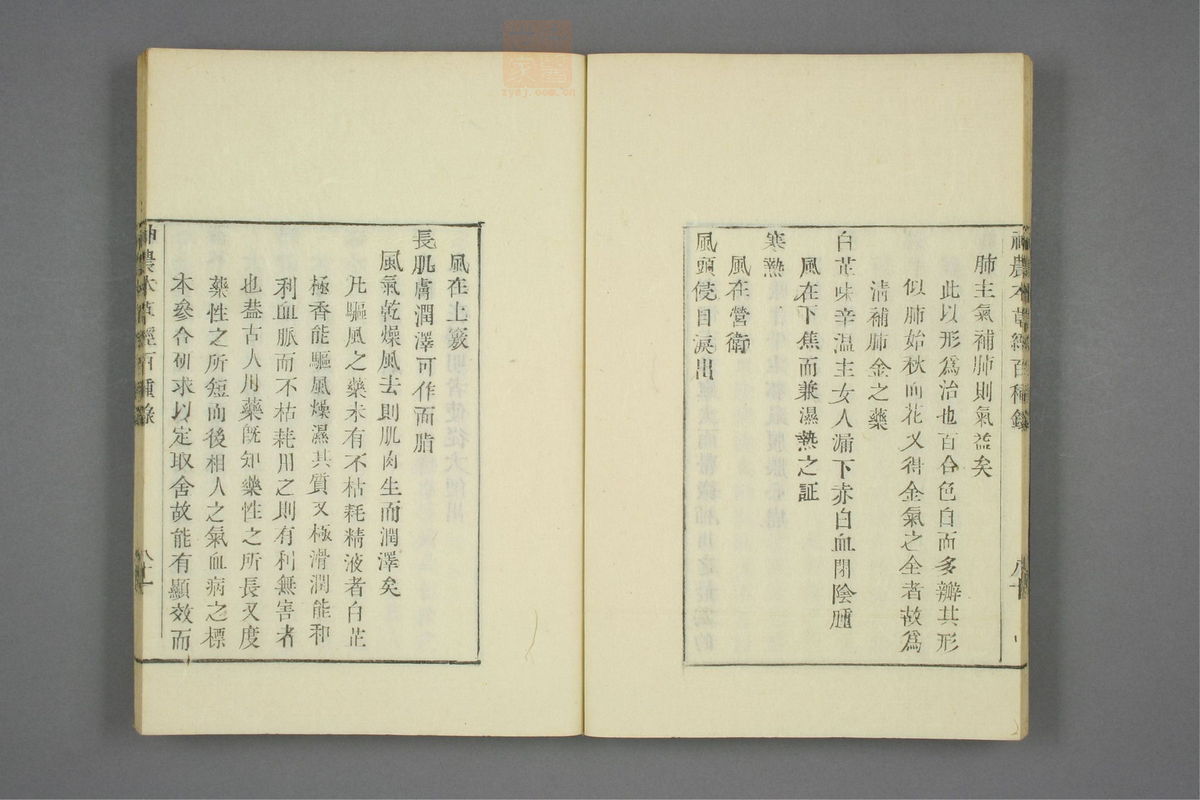 神農本草經百種錄
八十
肺主氣補肺則氣益矣
此以形爲治也百合色白而多瓣其形
似肺始秋而花又得金氣之全者故爲
清補肺金之藥
白芷味辛温主女人漏下赤白血閉陰腫
風在下焦而兼濕熱之証
寒熱
風在營衛
風頭侵目淚出
風在上竅
長肌膚潤澤可作面脂
風氣乾燥風去則肌肉生而潤澤矣
凡驅風之藥未有不枯耗精液者白芷
極香能驅風燥濕其質又極滑潤能和
利血脈而不枯耗用之則有利無害者
也蓋古人用藥既知藥性之所長又度
藥性之所短而後相人之氣血病之標
本參合研求以定取舍故能有顯效而
神農本草經百種錄
八十一
zysj.com.cn